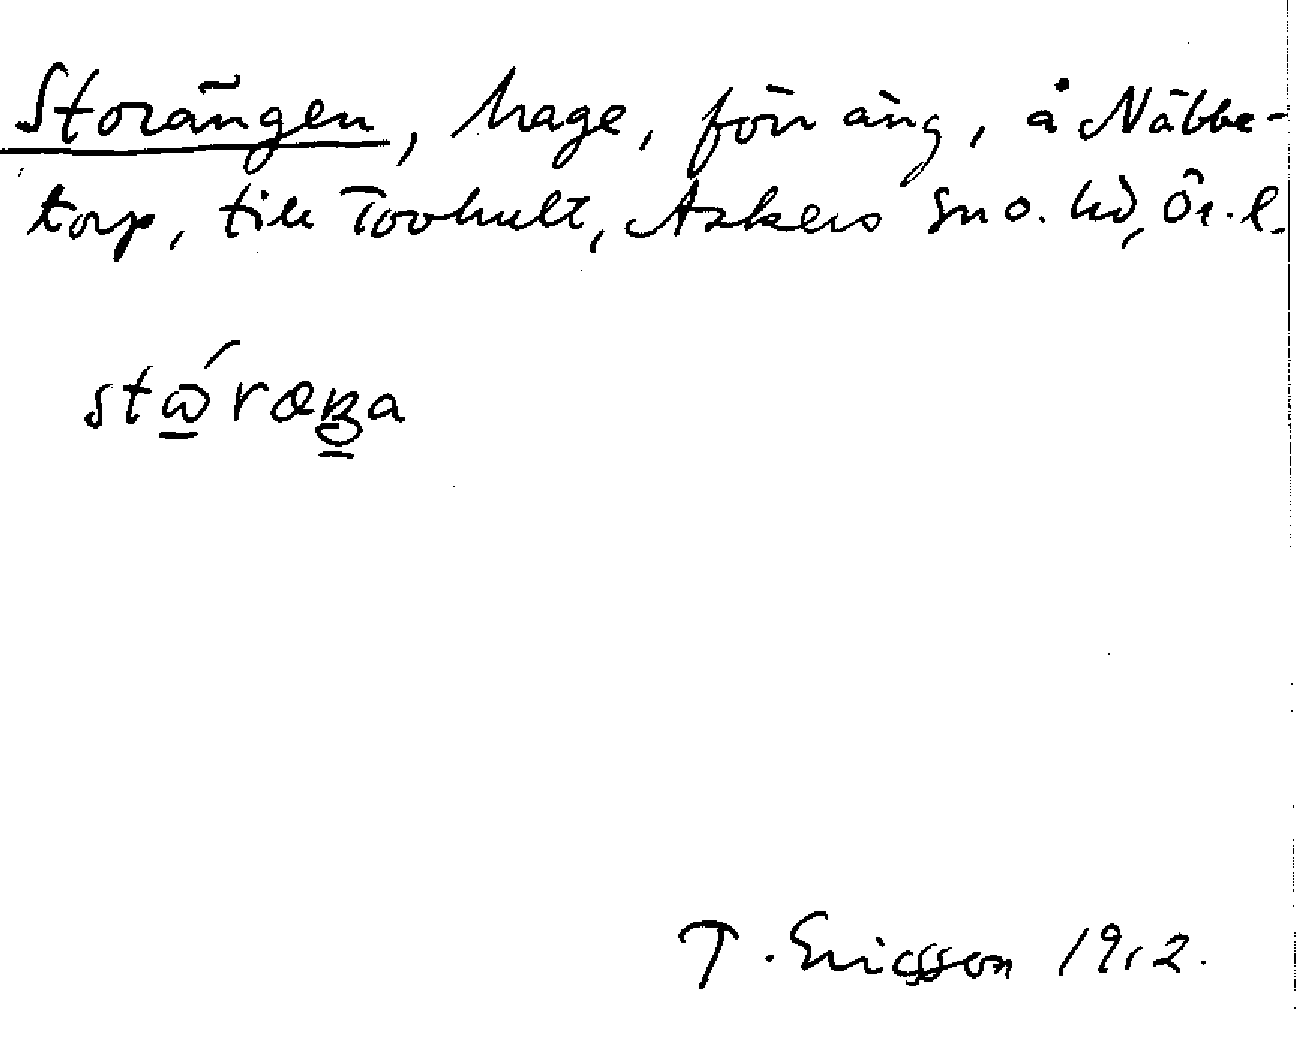 Storängen, hage, förr äng, å Näbbe-
torp, till Tovhult, Askers sn o. hd, Ör. l.
T. Ericsson 1912.